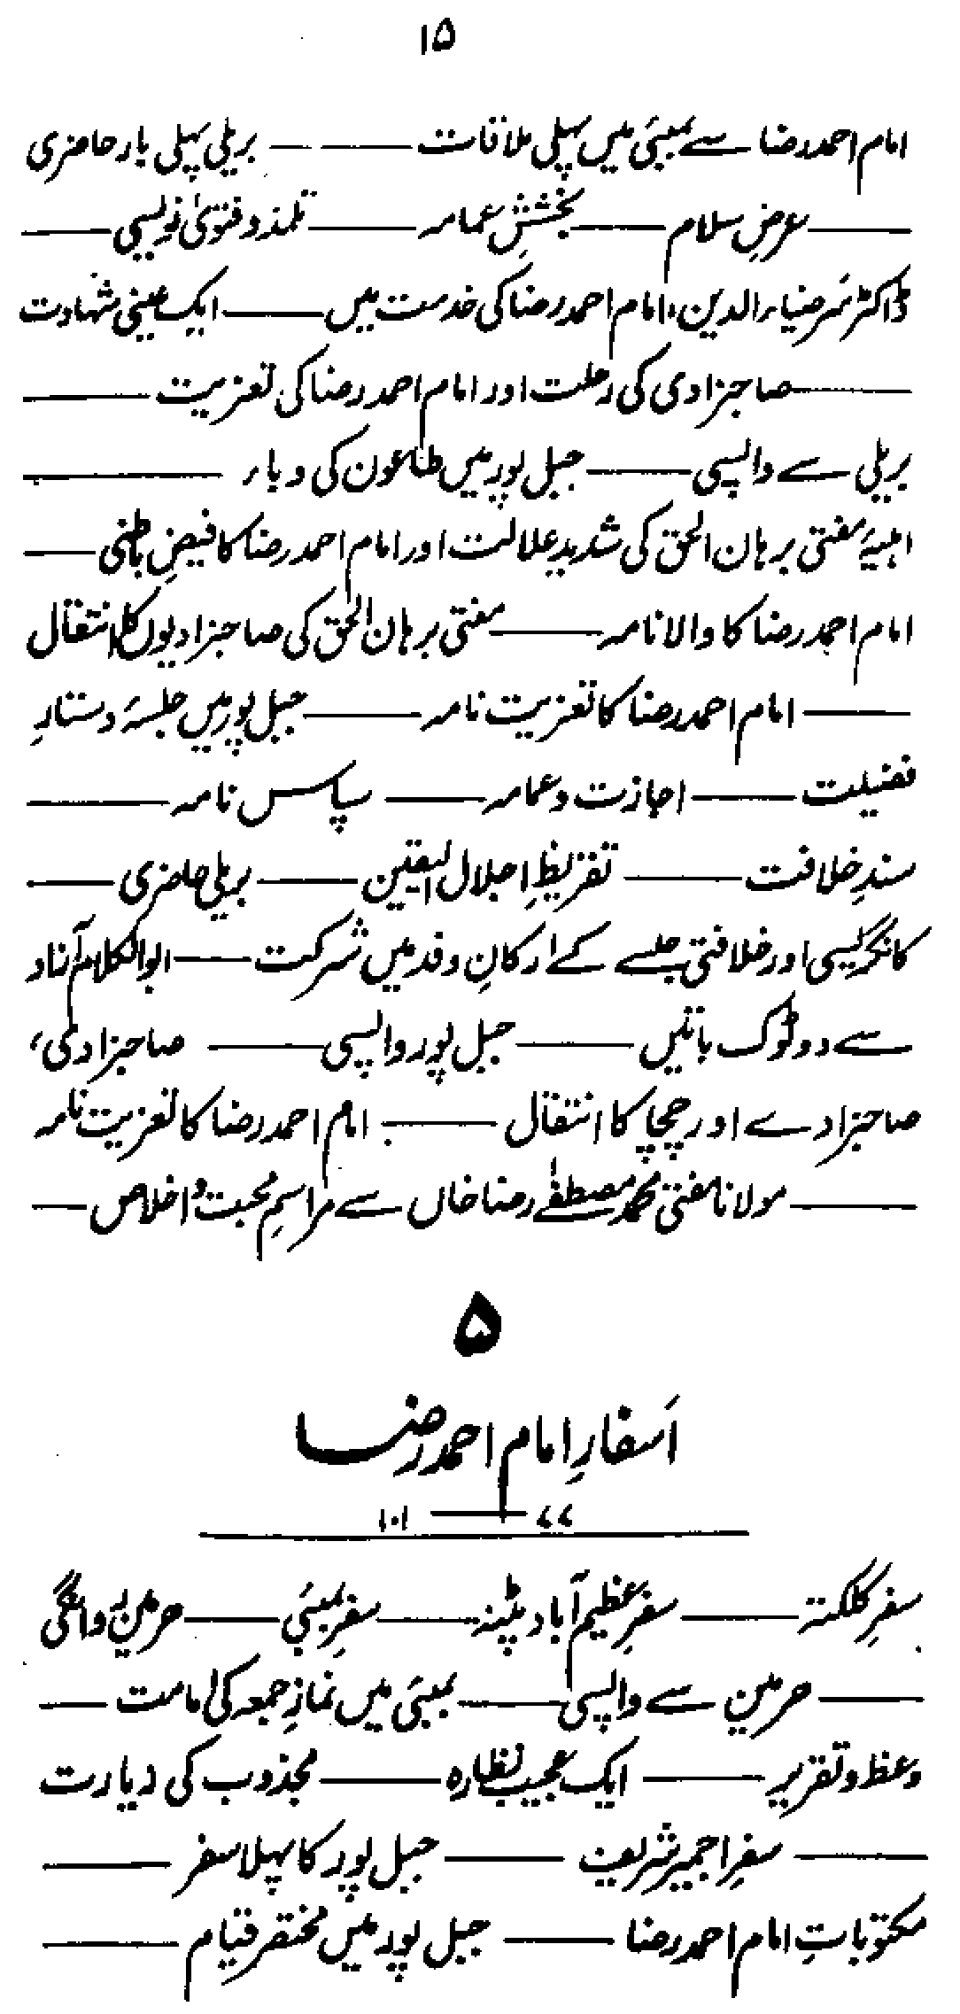 ۱۵
امام احمد رضا سے بمبئی میں پہلی ملاقات ——— بریلی پہلی بار حاضری
——— عرضِ سلام ——— بخششِ عمامہ ——— تلمذ و فتویٰ نویسی ———
ڈاکٹر سَر ضیاء الدین، امام احمد رضا کی خدمت میں ——— ایک عینی شہادت
——— صاحبزادی کی رحلت اور امام احمد رضا کی تعزیت ———
بریلی سے واپسی ——— جبل پور میں طاعون کی وباء ———
اہلیۂ مفتی برہان الحق کی شدید علالت اور امام احمد رضا کا فیضِ باطنی ———
امام احمد رضا کا والا نامہ ——— مفتی برہان الحق کی صاحبزادیوں کا انتقال
——— امام احمد رضا کا تعزیت نامہ ——— جبل پور میں جلسۂ دستارِ
فضیلت ——— اجازت و عمامہ ——— سپاس نامہ ———
سندِ خلافت ——— تقریظِ اجلال الیقین ——— بریلی حاضری ———
کانگریسی اور خلافتی جلسے کے ارکانِ وفد میں شرکت ——— ابوالکلام آزاد
سے دو ٹوک باتیں ——— جبل پور واپسی ——— صاحبزادی،
صاحبزادے اور چچا کا انتقال ——— امام احمد رضا کا تعزیت نامہ
——— مولانا مفتی محمد مصطفےٰ رضا خاں سے مراسمِ محبت و اخلاص ———
۵
اَسفارِ امام احمد رضا
۷۷ ——— ۱۰۱
سفرِ کلکتہ ——— سفرِ عظیم آباد پٹنہ ——— سفرِ بمبئی ——— حرمین روانگی
——— حرمین سے واپسی ——— بمبئی میں نمازِ جمعہ کی امامت ———
وعظ و تقریر ——— ایک عجیب نظارہ ——— مجذوب کی زیارت
——— سفرِ اجمیر شریف ——— جبل پور کا پہلا سفر ———
مکتوباتِ امام احمد رضا ——— جبل پور میں مختصر قیام ———